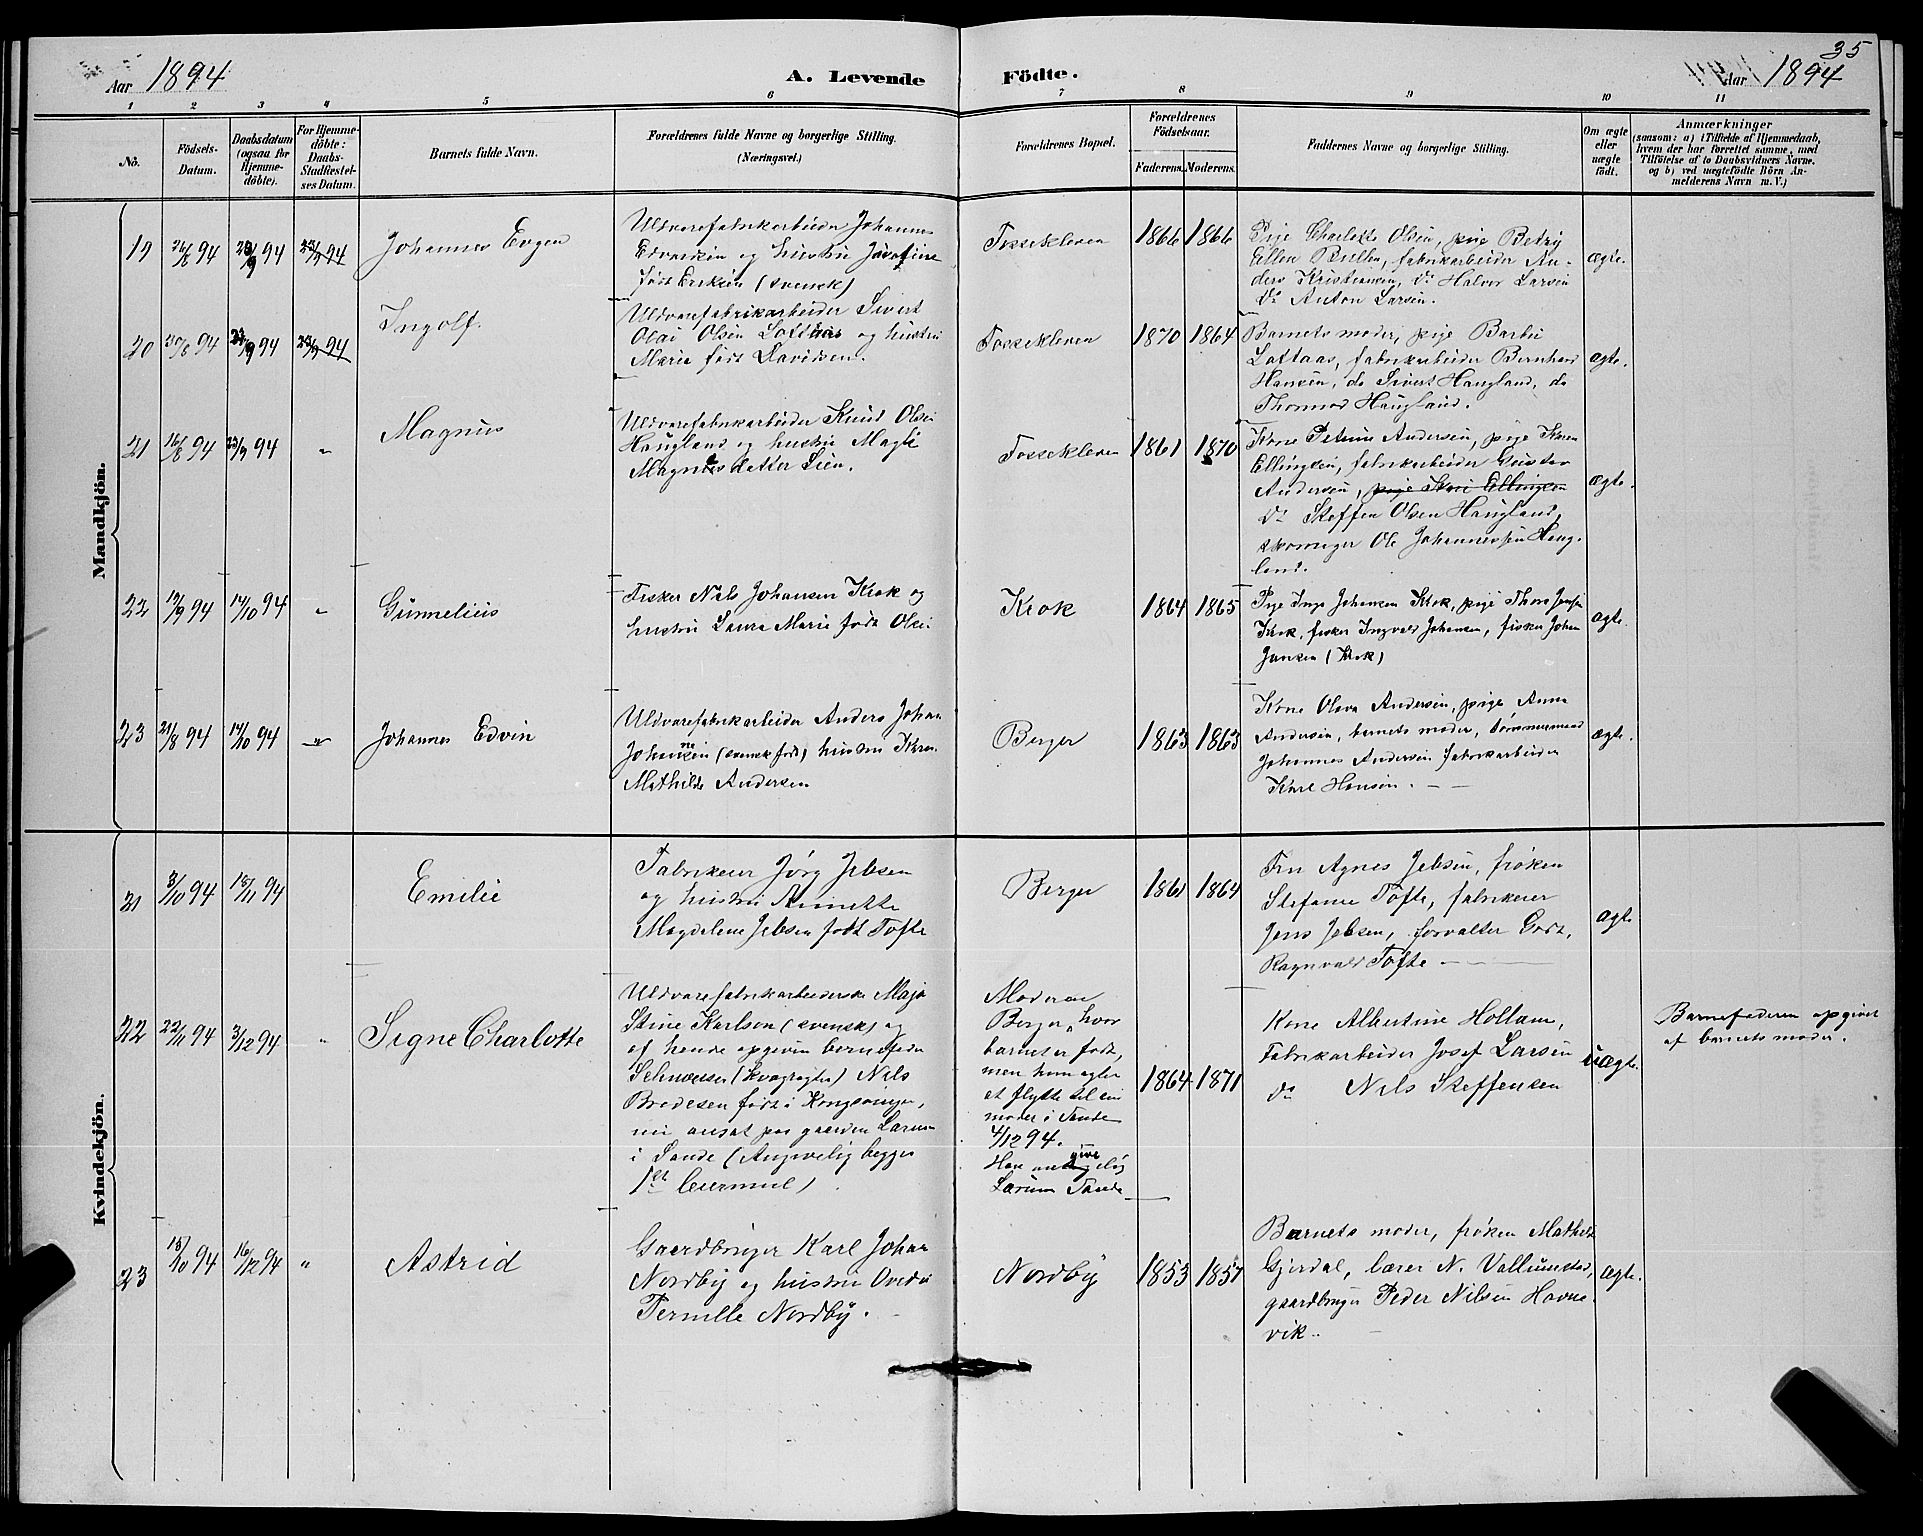 35
Aar 1894
A. Levende Födte.
Aar 1894
1 2 3 4 5 6 7 8 9 10 11
No.
Födsels-
Datum.
Daabsdatum
(ogsaa for
Hjemme-
döbte).
For Hjemme-
döbte:
Daabs-
Stadfæstel-
ses Datum.
Barnets fulde Navn.
Forældrenes fulde Navne og borgerlige Stilling.
(Næringsvei.)
Forældrenes Bopæl.
Forældrenes
Födselsaar.
Faderens. Moderens.
Faddernes Navne og borgerlige Stilling.
Om ægte
eller
uægte
födt.
Anmærkninger
(saasom: a) i Tilfælde af Hjemmedaab,
hvem der har forrettet samme, med
Tilföielse af to Daabsvidners Navne.
og b) ved uægtefödte Börn An-
melderens Navn m. V.)
Mandkjön.
19 26/8 94 23/9 94 23/9 94
Johannes Eugen
Uldvarefabrikarbeider Johannes
Edvardsen og hustru Josefine
født Eriksen (svensk)
Fossekleven
1866 1866
Pige Charlotte Olsen, pige Betzy
Ellen Bullen, fabrikarbeider An-
ders Kristiansen, do Halvor Larsen
do Anton Larsen.
ægte.
20 20/8 94 23/9 94 23/9 94
Ingolf.
Uldvarefabrikarbeider Sivert
Olai Olsen Lottaas og hustru
Marie født Davidsen.
Fossekleven
1870 1864
Barnets moder, pige Barbre
Lottaas, fabrikarbeider Bernhard
Hansen, do Sivert Haugland, do
Thomas Haugland.
ægte.
21 16/8 94 23/9 94 "
Magnus
Uldvarefabrikarbeider Knud Olsen
Haugland og hustru Magli
Magnesdatter Lien.
Fossekleven
1861 1870
Kone Petrine Andersen, pige Karen
Ellingsen, fabrikarbeider Gustav
Andersen, pige Kari Ellingsen
do Steffen Olsen Haugland,
skomager Ole Johannessen Haug-
land.
ægte.
22 17/9 94 14/10 94 "
Gunnelius
Fisker Nils Johansen Krok og
hustru Laura Marie født Olsen
Krok
1864 1865
Pige Inga Johansen Krok, pige Thora Jensen
Krok, fisker Ingvald Johansen, fisker Johan
Jansen (Krok)
ægte.
23 21/8 94 14/10 94 "
Johannes Edvin
Uldvarefabrikarbeider Anders Johan
Johannesen (svensk født) hustru Karen
Mathilde Andersen
Berger
1863 1863
Kone Olava Andersen, pige Anna
Andersen, barnets moder, tømmermand
Johannes Andersen fabrikarbeider
Karl Hansen.
ægte.
Kvindekjön.
21 3/10 94 18/11 94
Emilie
Fabrikeier Jørg Jebsen
og hustru Annette
Magdelene Jebsen født Tofte
Berger
1861 1864
Fru Agnes Jebsen, frøken
Stefanie Tofte, fabrikeier
Jens Jebsen, forvalter
Ragnvald Tofte
ægte
22 22/11 94 3/12 94 "
Signe Charlotte
Uldvarefabrikarbeiderske Maja
Stine Karlson (svensk) og
af hende opgiven barnefader
(kvægrøgter) Nils
Brodesen født i Kongsvinger,
nu ansat paa gaarden Lærum
i Sande (Angivelig begges
1st leiermaal)
Moderen
Berger, hvor
barnet er født,
men hun agter
at flytte til sin
moder i Sande
4/12 94.
Han angivelig
Lærum Sande
1864 1871
Kone Albertine Hollam,
Fabrikarbeider Josef Larsen
do Nils Steffensen
uægte.
Barnefaderen opgivet
af barnets moder.
23 18/10 94 16/12 94 "
Astrid
Gaardbruger Karl Johan
Nordby og hustru
Pernille Nordby.
Nordby
1853 1857
Barnets moder, frøken Mathilde
Gjerdal, lærer N. Vallumstad,
gaardbruger Peder Nilsen Havne-
vik.
ægte.